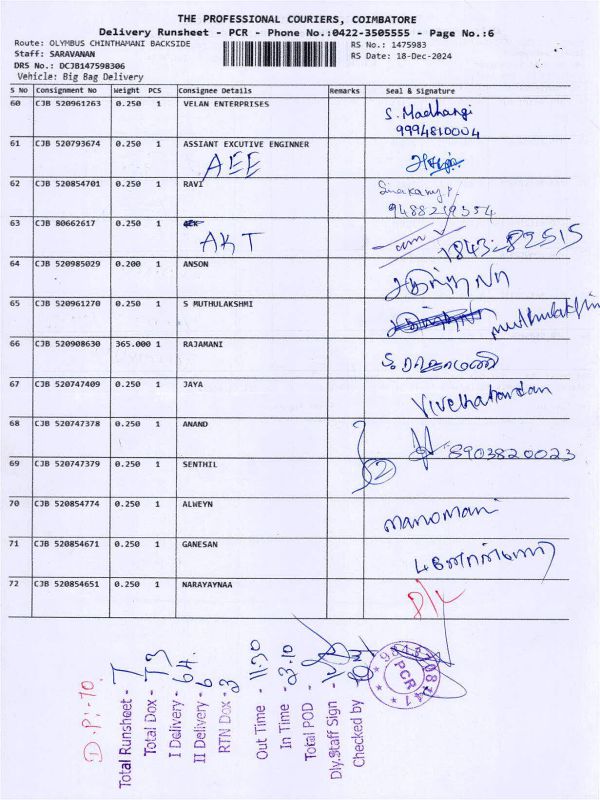 THE PROFESSIONAL COURIERS, COIMBATORE
Delivery Runsheet - PCR - Phone No.:0422-3505555 - Page No.:6
Route: OLYMBUS CHINTHAMANI BACKSIDE RS No.: 1475983
Staff: SARAVANAN RS Date: 18-Dec-2024
DRS No.: DCJB147598306
Vehicle: Big Bag Delivery
S No Consignment No Weight PCS Consignee Details Remarks Seal & Signature
60 CJB 520961263 0.250 1 VELAN ENTERPRISES S. Madhangi
9994810004
61 CJB 520793674 0.250 1 ASSIANT EXCUTIVE ENGINNER
AEE
62 CJB 520854701 0.250 1 RAVI
9488219354
63 CJB 80662617 0.250 1
AKT 1843-82515
64 CJB 520985029 0.200 1 ANSON
65 CJB 520961270 0.250 1 S MUTHULAKSHMI
66 CJB 520908630 365.000 1 RAJAMANI
67 CJB 520747409 0.250 1 JAYA
68 CJB 520747378 0.250 1 ANAND
8903820023
69 CJB 520747379 0.250 1 SENTHIL
2
70 CJB 520854774 0.250 1 ALWEYN manomani
71 CJB 520854671 0.250 1 GANESAN
72 CJB 520854651 0.250 1 NARAYAYNAA
D.P:-70.
Total Runsheet - 7
Total Dox - 73
I Delivery - 64
II Delivery - 6
RTN Dox - 3
Out Time - 11:30
In Time - 23.10
Total POD -
Dly.Staff Sign -
Checked by
PCR